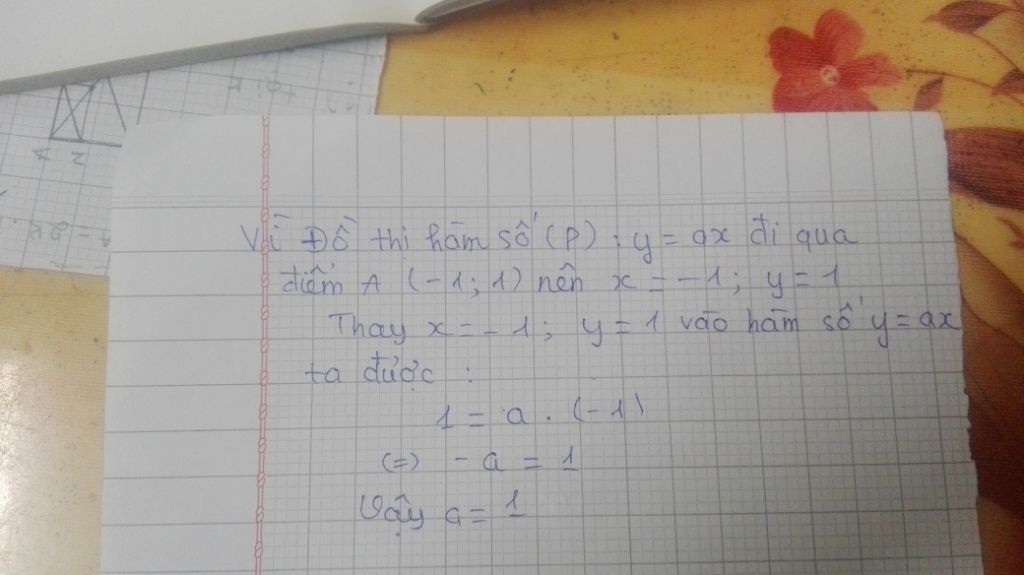 Vì Đồ thị hàm số (P) : y = ax đi qua
điểm A (-1; 1) nên x = -1; y = 1
Thay x = -1; y = 1 vào hàm số y = ax
ta được :
1 = a . (-1)
(=) - a = 1
Vậy a = 1